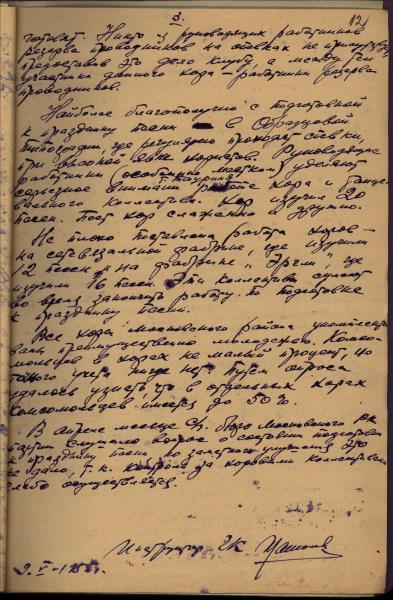 3.
12
готовят. Никто из руководящих работников
резерва проводников на спевках не присутствует,
предоставив это дело клубу, а между тем
участники данного хора – работники резерва
проводников.
Наиболее благополучно с подготовкой
к празднику песни в Образцовой
типографии, где регулярно проходят спевки,
при высокой явке хористов. Руководящие
работники (особенно местком) уделяют
серьезное внимание работе хора и танце-
вального коллектива. Хор изучил 20
песен. Поет хор слаженно и дружно.
Не плохо поставлена работа хоров –
на фабрике, где изучили
12 песен и на фабрике, где
изучили 16 песен. Эти коллективы сумеют
во время закончить работу по подготовке
к празднику песни.
Все хора Московского района укомплекто-
ваны преимущественно молодежью. Комсо-
мольцев в хорах не малый процент, но
точного учета нигде нет. Путем опроса
удалось узнать, что в отдельных хорах
комсомольцев имеется до 50%.
В апреле месяце бюро Московского РК
партии слушало вопрос о состоянии подготовки
к празднику песни, но заметного улучшения это
не дало, т.к. контроль за хоровыми коллективами
слабо осуществляется.
Инструктор ЦК
9.V-195